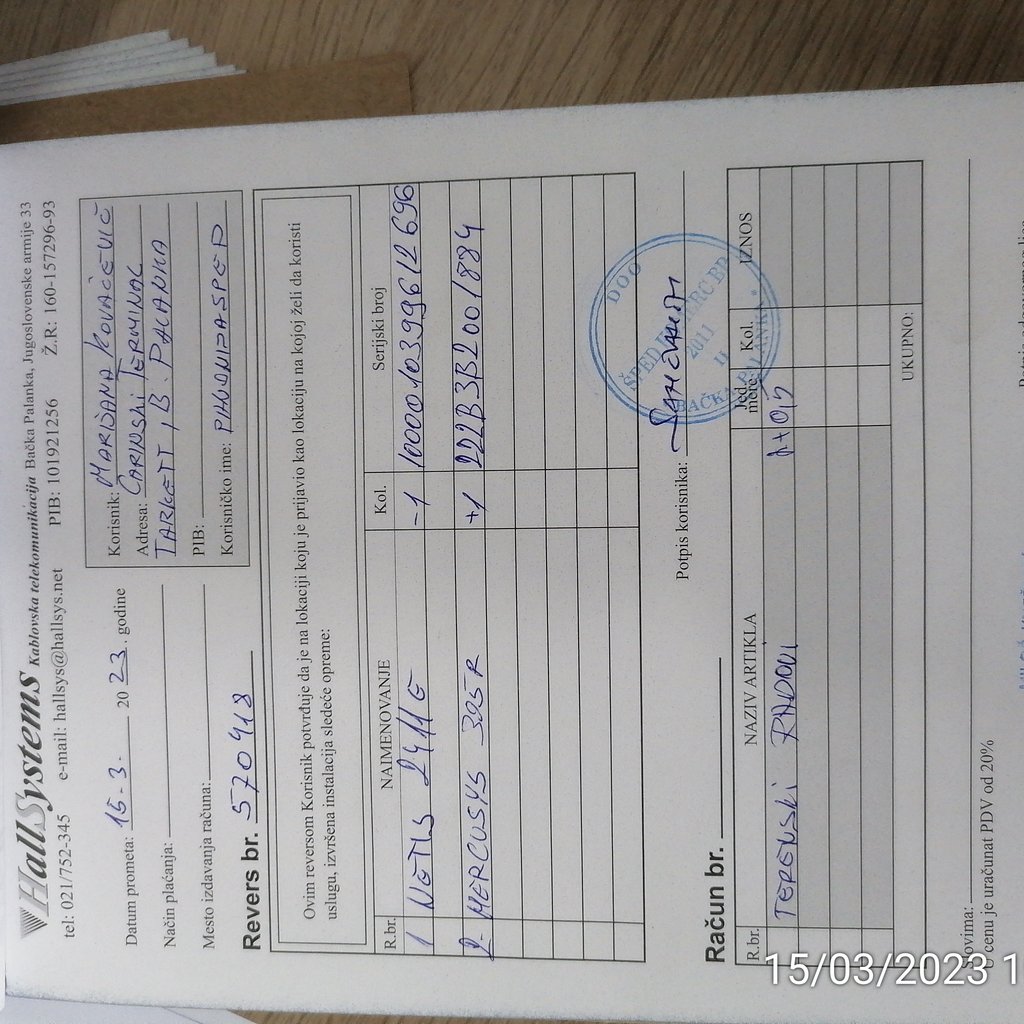 HallSystems Kablovska telekomunikacija Bačka Palanka, Jugoslovenske armije 33
tel: 021/752-345 e-mail: hallsys@hallsys.net PIB: 101921256 Ž.R: 160-157296-93
Datum prometa: 15-3- 2023. godine
Način plaćanja:
Mesto izdavanja računa:
Korisnik: MARIJANA KOVAČEVIĆ
Adresa: CARINSKI TERMINAL
TARKETT, B. PALANKA
PIB:
Korisničko ime:
Revers br. 570418
Ovim reversom Korisnik potvrđuje da je na lokaciji koju je prijavio kao lokaciju na kojoj želi da koristi
uslugu, izvršena instalacija sledeće opreme:
R.br. NAIMENOVANJE Kol. Serijski broj
1 NETIS 2411E -1 1000010399612696
2. MERCUSYS 325R +1 222B3B2001884
Potpis korisnika:
DOO
ŠPEDIMERCERD
2011
II
BAČKA PALANKA
Račun br.
R.br. NAZIV ARTIKLA Jed. mere Kol. IZNOS
TERENSKI RADOVI 1+0,5
UKUPNO:
Slovima:
U cenu je uračunat PDV od 20%
15/03/2023 1